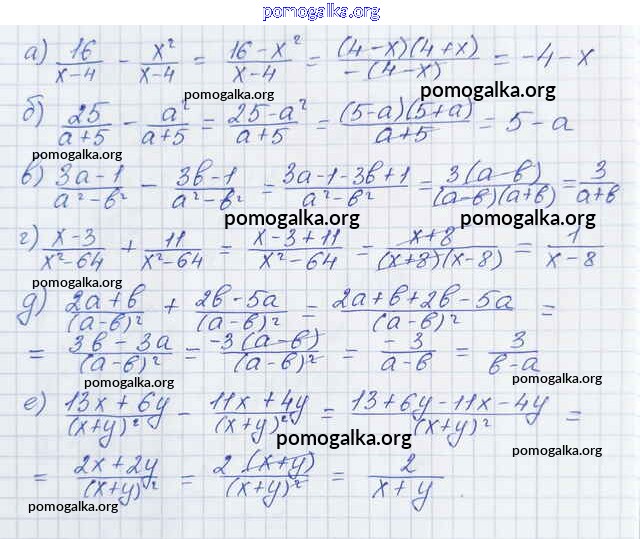 pomogalka.org
а) 16/(x-4) - x²/(x-4) = (16-x²)/(x-4) = (4-x)(4+x)/-(4-x) = -4-x
pomogalka.org pomogalka.org
б) 25/(a+5) - a²/(a+5) = (25-a²)/(a+5) = (5-a)(5+a)/(a+5) = 5-a
pomogalka.org pomogalka.org
в) (3a-1)/(a²-b²) - (3b-1)/(a²-b²) = (3a-1-3b+1)/(a²-b²) = 3(a-b)/(a-b)(a+b) = 3/(a+b)
pomogalka.org pomogalka.org
г) (x-3)/(x²-64) + 11/(x²-64) = (x-3+11)/(x²-64) = (x+8)/(x+8)(x-8) = 1/(x-8)
pomogalka.org
д) (2a+b)/(a-b)² + (2b-5a)/(a-b)² = (2a+b+2b-5a)/(a-b)² =
= (3b-3a)/(a-b)² = -3(a-b)/(a-b)² = -3/(a-b) = 3/(b-a)
pomogalka.org pomogalka.org
е) (13x+6y)/(x+y)² - (11x+4y)/(x+y)² = (13+6y-11x-4y)/(x+y)² =
pomogalka.org
= (2x+2y)/(x+y)² = 2(x+y)/(x+y)² = 2/(x+y).
pomogalka.org pomogalka.org